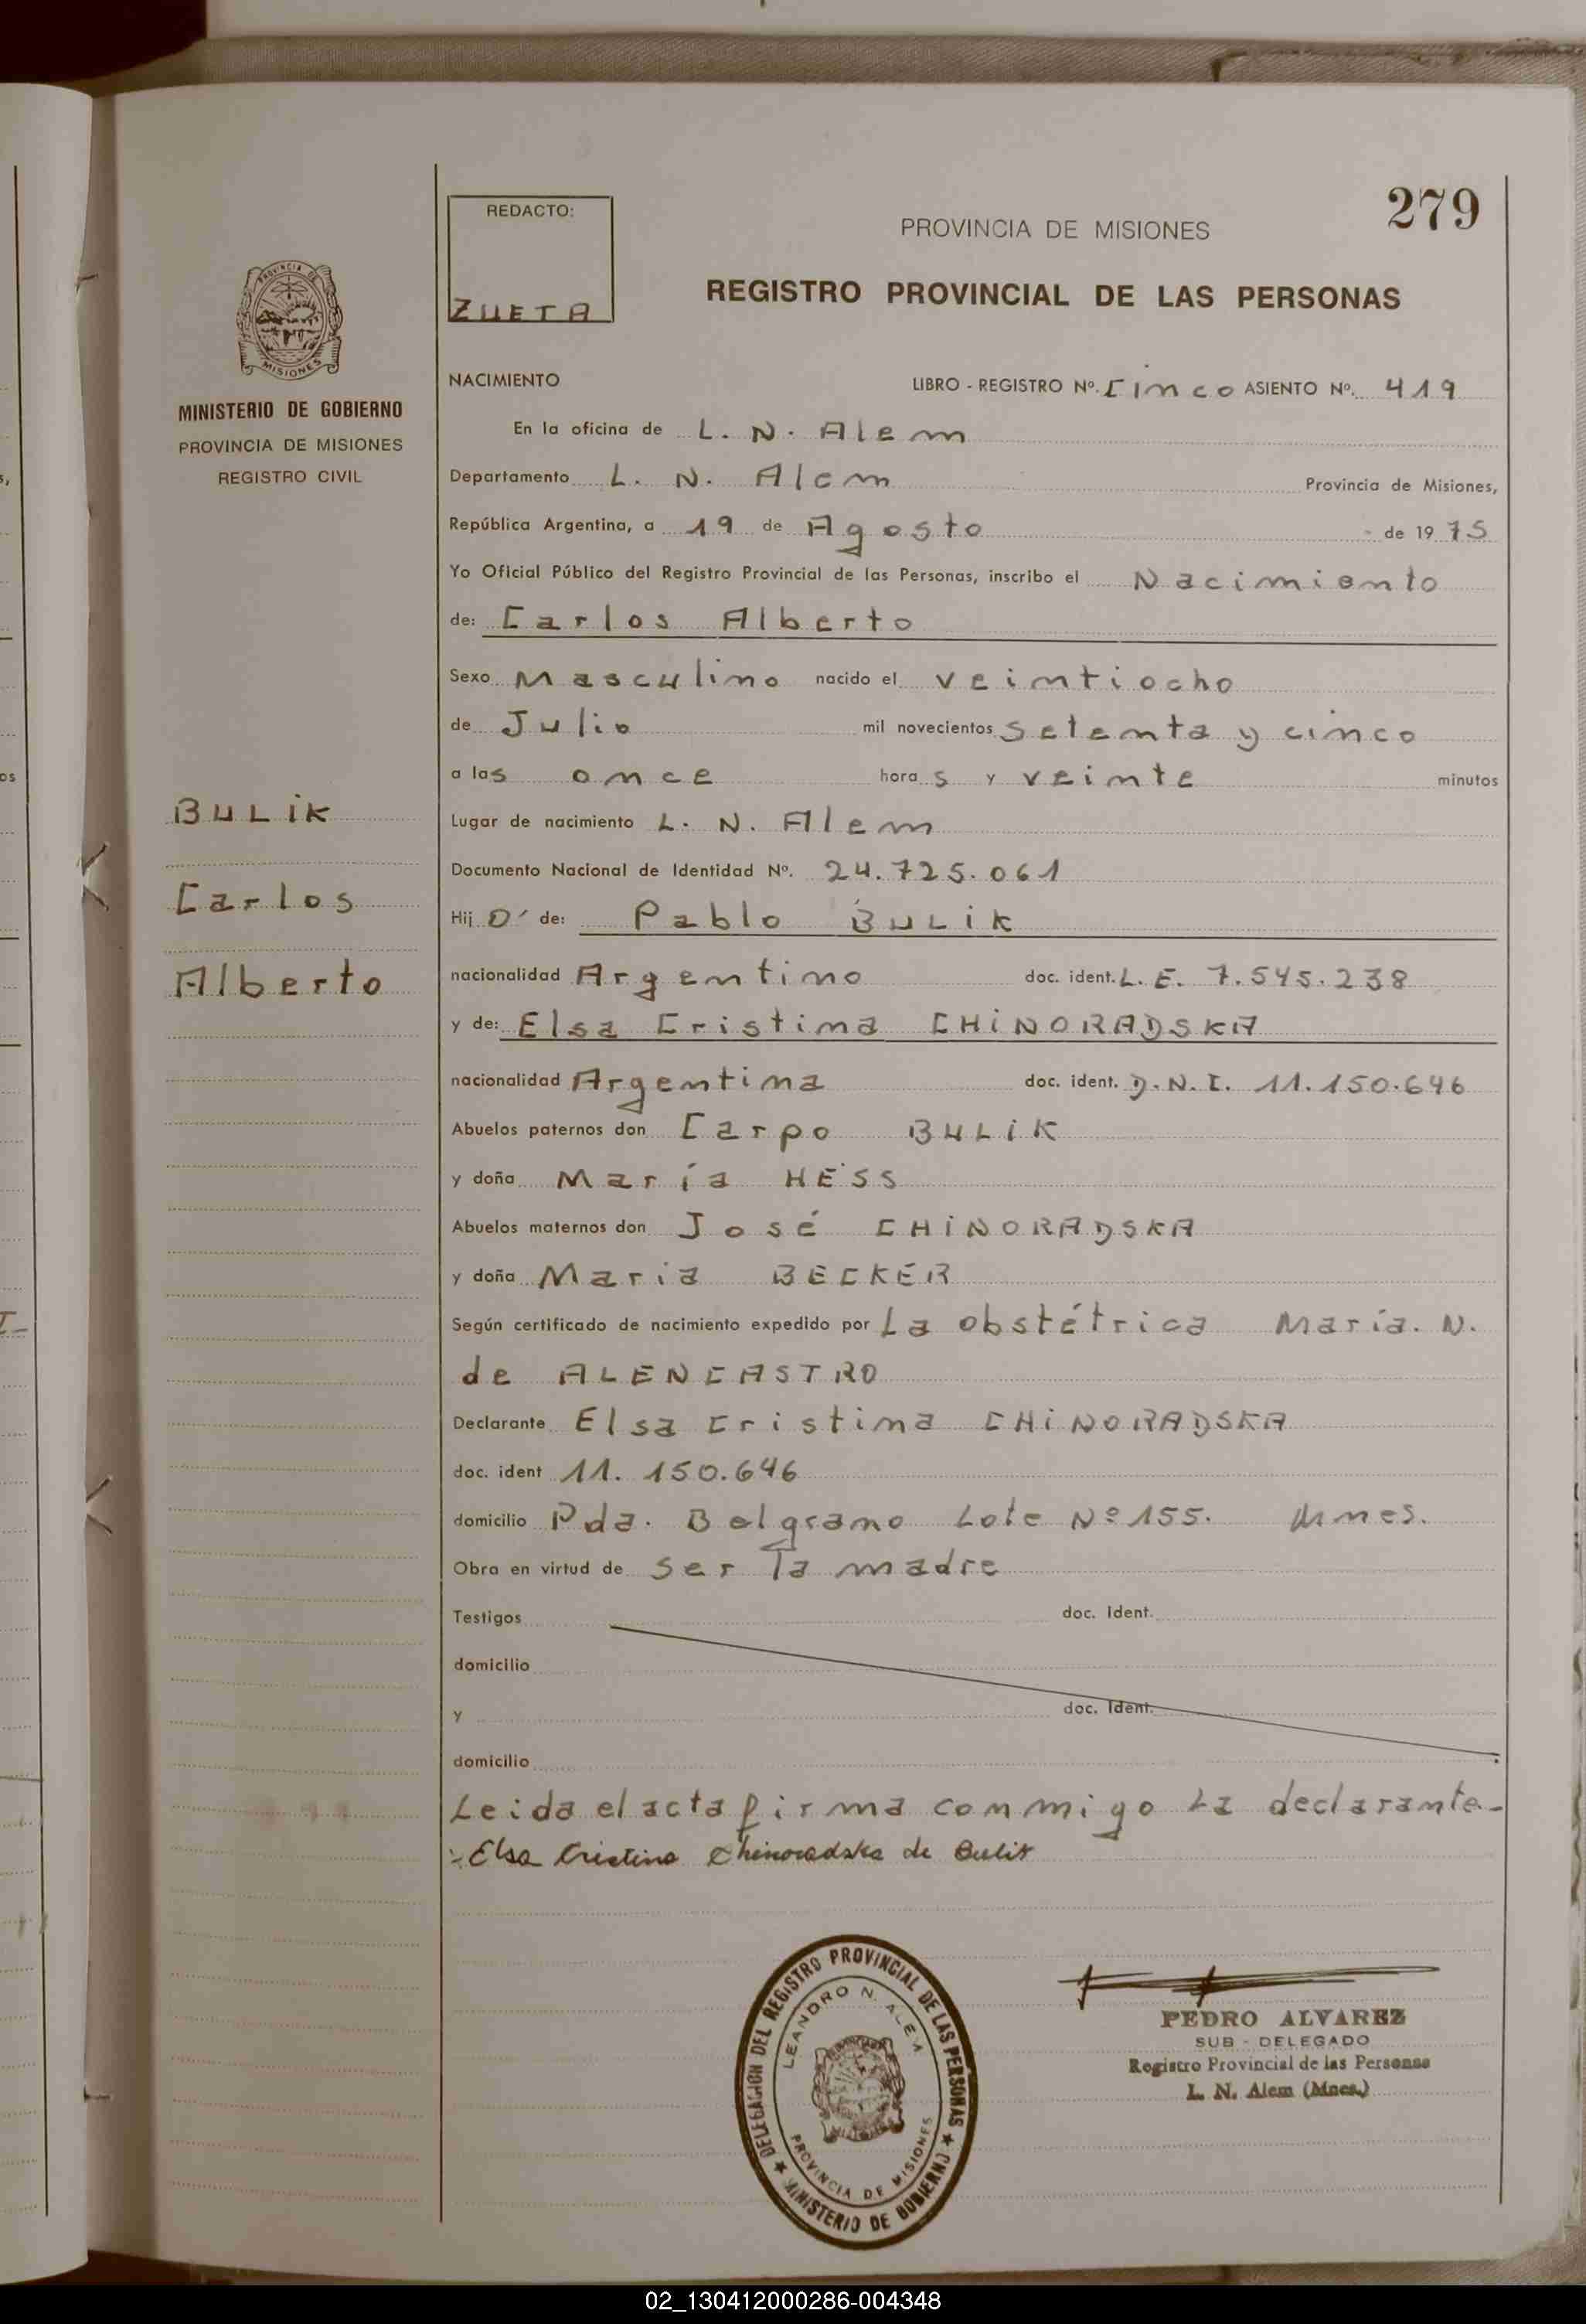 279
REDACTO:
ZUETA
PROVINCIA DE MISIONES
REGISTRO PROVINCIAL DE LAS PERSONAS
PROVINCIA DE
MISIONES
MINISTERIO DE GOBIERNO
PROVINCIA DE MISIONES
REGISTRO CIVIL
BULiK
Carlos
Alberto
NACIMIENTO LIBRO - REGISTRO Nº. Cinco ASIENTO Nº. 419
En la oficina de L. N. Alem
Departamento L. N. Alem Provincia de Misiones,
República Argentina, a 19 de Agosto de 1975
Yo Oficial Público del Registro Provincial de las Personas, inscribo el Nacimiento
de: Carlos Alberto
Sexo Masculino nacido el veintiocho
de Julio mil novecientos setenta y cinco
a las once horas y veinte minutos
Lugar de nacimiento L. N. Alem
Documento Nacional de Identidad Nº. 24.725.061
Hijo de: Pablo BULiK
nacionalidad Argentino doc. ident. L. E. 7.545.238
y de: Elsa Cristina CHiNORADSKA
nacionalidad Argentina doc. ident. D.N.I. 11.150.646
Abuelos paternos don Carpo BULiK
y doña María HESS
Abuelos maternos don José CHiNORADSKA
y doña Maria BECKER
Según certificado de nacimiento expedido por La obstétrica María. N.
de ALENCASTRO
Declarante Elsa Cristina CHiNORADSKA
doc. ident 11. 150.646
domicilio Pda. Belgrano Lote Nº 155. Mnes.
Obra en virtud de ser la madre
Testigos doc. Ident.
domicilio
y doc. Ident.
domicilio
Leida el acta firma conmigo La declarante.-
Elsa Cristina Chinoradska de Bulik
DELEGACION DEL REGISTRO PROVINCIAL DE LAS PERSONAS
MINISTERIO DE GOBIERNO
LEANDRO N. ALEM
PROVINCIA DE MISIONES
PEDRO ALVAREZ
SUB - DELEGADO
Registro Provincial de las Personas
L. N. Alem (Mnes.)
02_130412000286-004348